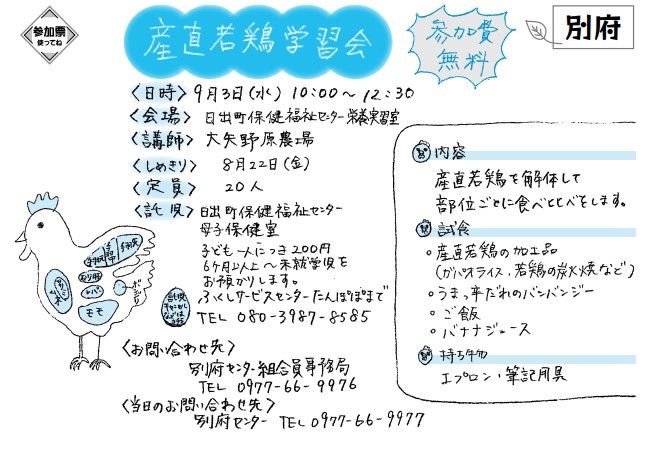 参加票
使ってね
産直若鶏学習会
参加費
無料
別府
〈日時〉9月3日(水) 10:00～12:30
〈会場〉日出町保健福祉センター栄養実習室
〈講師〉大矢野原農場
〈しめきり〉8月22日(金)
〈定員〉20人
〈託児〉日出町保健福祉センター
母子保健室
子ども一人につき200円
6ヶ月以上～未就学児を
お預かりします。
ふくしサービスセンターたんぽぽまで
TEL 080-3987-8585
〈お問い合わせ先〉
別府センター組合員事務局
TEL 0977-66-9976
〈当日のお問い合わせ先〉
別府センター TEL 0977-66-9977
手羽元
手羽中
手羽先
ムネ
モモ
内容
産直若鶏を解体して
部位ごとに食べくらべをします。
試食
・産直若鶏の加工品
(ガパオライス、若鶏の炭火焼など)
○うまっ辛だれのバンバンジー
○ご飯
・バナナジュース
持ち物
エプロン・筆記用具